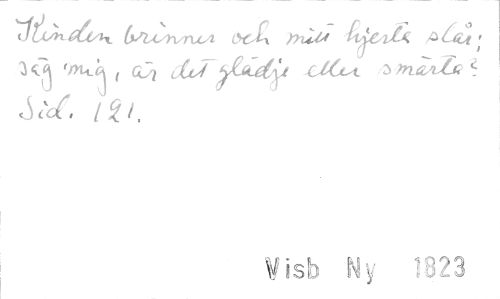 Kinden brinner och mitt hjerta slår;
säg mig, är det glädje eller smärta?
Sid. 121.
Visb Ny 1823